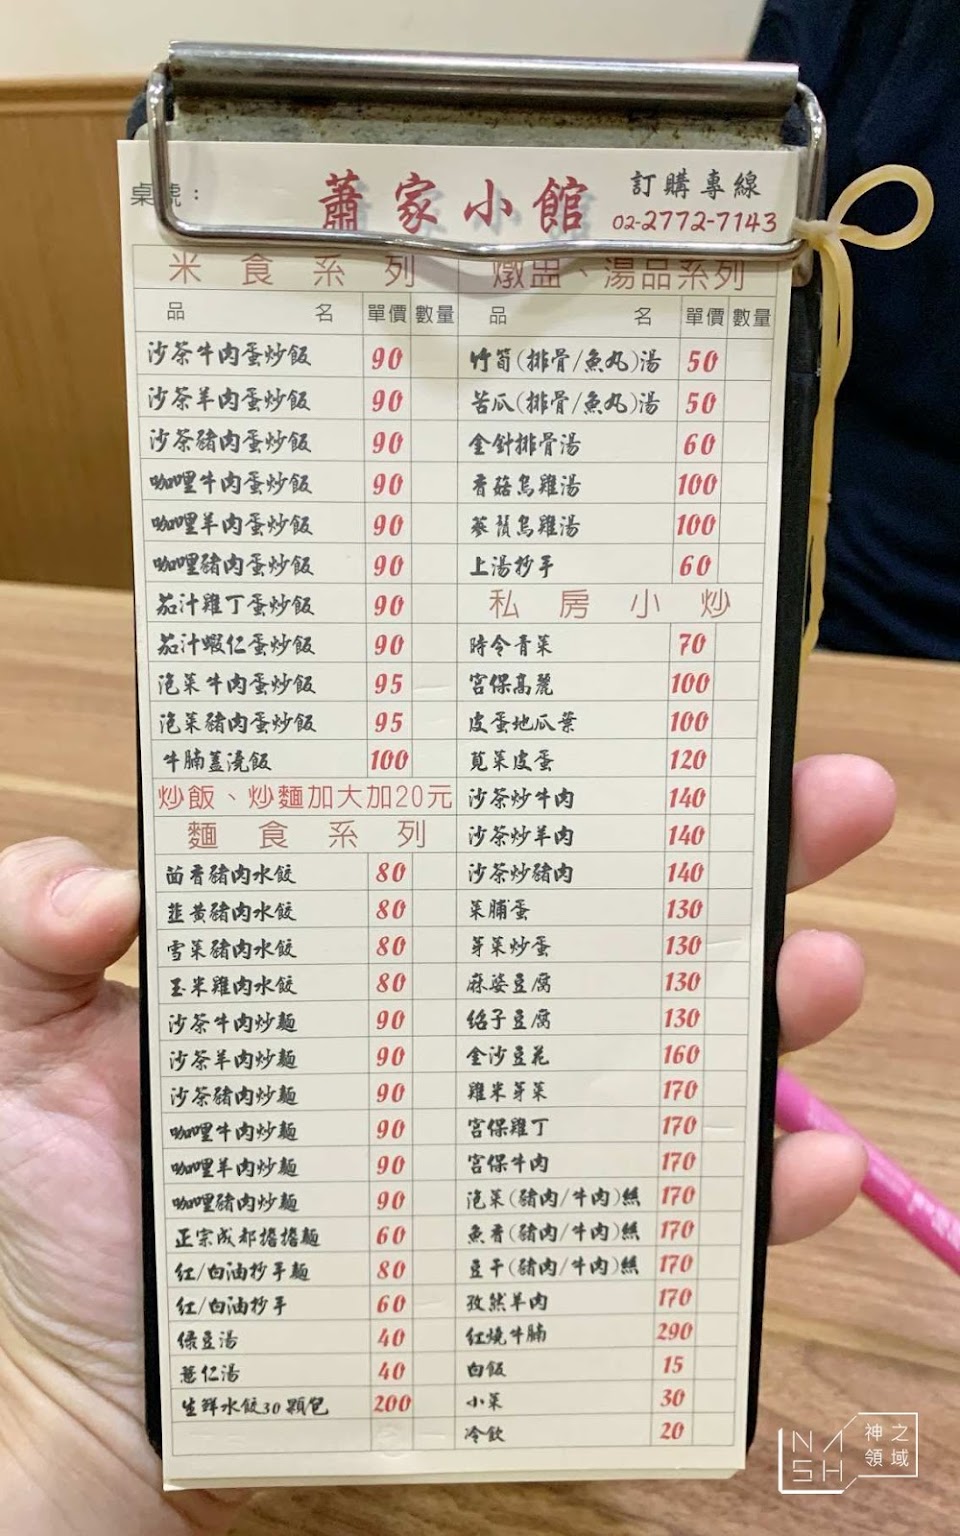 桌號：
蕭家小館
訂購專線
02-2772-7143
米食系列
品名 單價 數量
沙茶牛肉蛋炒飯 90
沙茶羊肉蛋炒飯 90
沙茶豬肉蛋炒飯 90
咖哩牛肉蛋炒飯 90
咖哩羊肉蛋炒飯 90
咖哩豬肉蛋炒飯 90
茄汁雞丁蛋炒飯 90
茄汁蝦仁蛋炒飯 90
泡菜牛肉蛋炒飯 95
泡菜豬肉蛋炒飯 95
牛腩蓋澆飯 100
炒飯、炒麵加大加20元
麵食系列
茴香豬肉水餃 80
韭黃豬肉水餃 80
雪菜豬肉水餃 80
玉米雞肉水餃 80
沙茶牛肉炒麵 90
沙茶羊肉炒麵 90
沙茶豬肉炒麵 90
咖哩牛肉炒麵 90
咖哩羊肉炒麵 90
咖哩豬肉炒麵 90
正宗成都擔擔麵 60
紅/白油抄手麵 80
紅/白油抄手 60
綠豆湯 40
薏仁湯 40
生鮮水餃30顆包 200
燉盅、湯品系列
品名 單價 數量
竹筍(排骨/魚丸)湯 50
苦瓜(排骨/魚丸)湯 50
金針排骨湯 60
香菇烏雞湯 100
蔘鬚烏雞湯 100
上湯抄手 60
私房小炒
時令青菜 70
宮保高麗 100
皮蛋地瓜葉 100
莧菜皮蛋 120
沙茶炒牛肉 140
沙茶炒羊肉 140
沙茶炒豬肉 140
菜脯蛋 130
芽菜炒蛋 130
麻婆豆腐 130
紹子豆腐 130
金沙豆花 160
雞米芽菜 170
宮保雞丁 170
宮保牛肉 170
泡菜(豬肉/牛肉)絲 170
魚香(豬肉/牛肉)絲 170
豆干(豬肉/牛肉)絲 170
孜然羊肉 170
紅燒牛腩 290
白飯 15
小菜 30
冷飲 20
NASH
神之領域